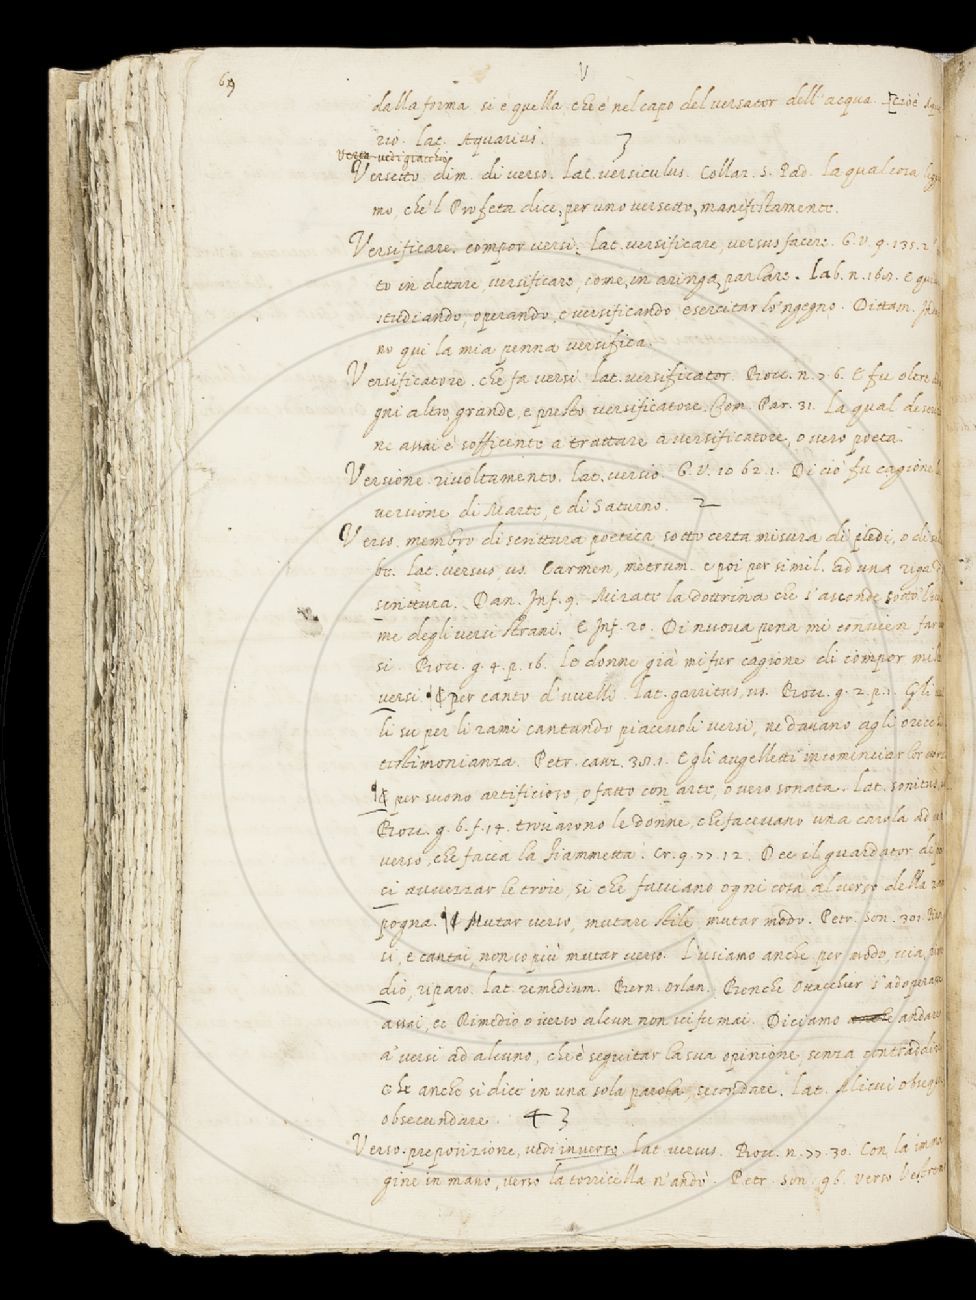 69
V
dalla forma si è quella che è nel capo del versator dell'acqua. cioè
rio. lat. Aquarius. 3
vedi giacchio
Versetto. dim. di verso. lat. versiculus. Collaz. S. Pad. la qual cosa
mo, che'l Profeta dice, per uno versetto, manifestamente.
Versificare. compor versi. lat. versificare, versus facere. G.V. 9. 135. 2.
to in dettare, versificare, come in aringa parlare. Lab. n. 168. E
studiando, operando, e versificando esercitar lo'ngegno. Dittam.
no qui la mia penna versifica.
Versificatore. che fa versi. lat. versificator. Bocc. n. 77. 6. E fu oltre
gni altro, grande, e presto versificatore. Com. Par. 31. la qual
ne assai è sofficente a trattare a versificatore, o vero poeta.
Versione. rivoltamento. lat. versio. G.V. 10. 62. 1. Di ciò fu cagione
versione di Marte, e di Saturno. 2
Verso. membro di scrittura poetica sotto certa misura di piedi, o di
be. lat. versus, us. Carmen, metrum. e poi per simil. ad una riga
scrittura. Dan. Inf. 9. Mirate la dottrina che s'asconde sotto'l
me degli versi strani. E Inf. 20. Di nuova pena mi convien far
si. Bocc. g. 4. p. 16. le donne già mi fur cagione di compor
versi. ¶ per canto d'uccelli. lat. garritus, us. Bocc. g. 2. p. 1. Gli
li su per li rami cantando piacevoli versi, ne davano agli
testimonianza. Petr. canz. 38. 1. E gli augelletti incominciar lor
¶ per suono artificioso, o fatto con arte, o vero sonata. lat. sonitus
Bocc. g. 6. f. 14. trovarono le donne, che facevano una carola ad
verso, che facea la Fiammetta. Cr. 9. 77. 12. Dee il guardator
ci avvezzar le troie, si che facciano ogni cosa al verso della
pogna. ¶ Mutar verso, mutare stile, mutar modo. Petr. Son. 301.
si, e cantai, non so più mutar verso. Usiamo anche per modo, via,
dio, riparo. lat. remedium. Bern. Orlan. Benche Ovacchier s'adoperasse
assai, ec Rimedio o verso alcun non ci fu mai. Diciamo andare
a' versi ad alcuno, che è seguitar la sua opinione senza
che anche si dice in una sola parola, secondare. lat. Alicui
obsecundare. 4 3
Verso. preposizione, vedi inverso. lat. versus. Bocc. n. 77. 30. Con la
gine in mano, verso la torricella n'andò. Petr. son. 96. verso